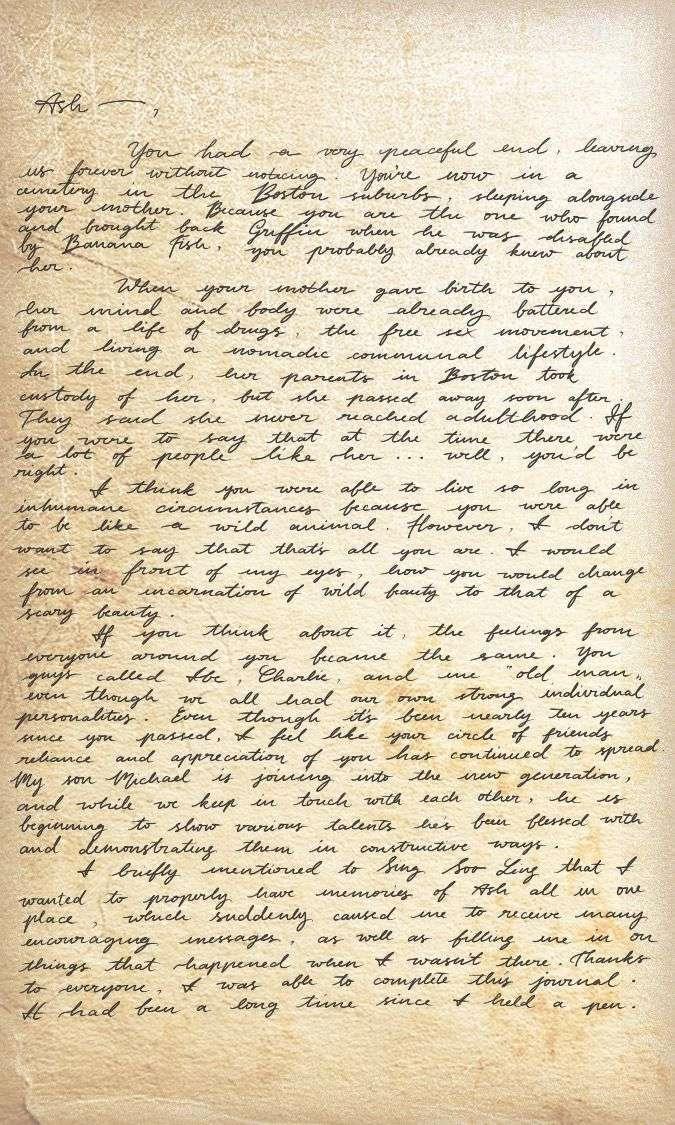 Ash —,
You had a very peaceful end, leaving
us forever without noticing. You're now in a
cemetery in the Boston suburbs, sleeping alongside
your mother. Because you are the one who found
and brought back Griffin when he was disabled
by Banana Fish, you probably already knew about
her.
When your mother gave birth to you,
her mind and body were already battered
from a life of drugs, the free sex movement,
and living a nomadic communal lifestyle.
In the end, her parents in Boston took
custody of her, but she passed away soon after.
They said she never reached adulthood. If
you were to say that at the time there were
a lot of people like her... well, you'd be
right.
I think you were able to live so long in
inhumane circumstances because you were able
to be like a wild animal. However, I don't
want to say that that's all you are. I would
see in front of my eyes, how you would change
from an incarnation of wild beauty to that of a
scary beauty.
If you think about it, the feelings from
everyone around you became the same. You
guys called Ibe, Charlie, and me "old man",
even though we all had our own strong individual
personalities. Even though it's been nearly ten years
since you passed, I feel like your circle of friends
reliance and appreciation of you has continued to spread.
My son Michael is joining into the new generation,
and while we keep in touch with each other, he is
beginning to show various talents he's been blessed with
and demonstrating them in constructive ways.
I briefly mentioned to Sing Soo Ling that I
wanted to properly have memories of Ash all in one
place, which suddenly caused me to receive many
encouraging messages, as well as filling me in on
things that happened when I wasn't there. Thanks
to everyone, I was able to complete this journal.
It had been a long time since I held a pen.